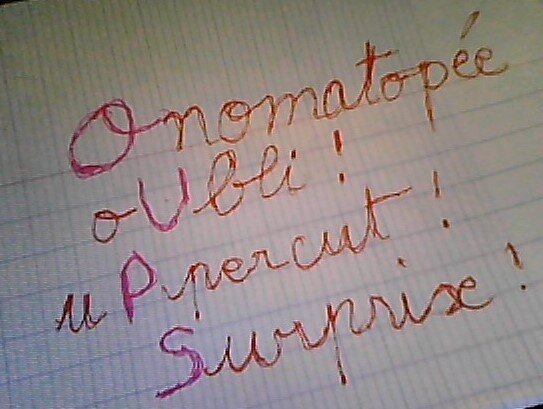 Onomatopée
oUbli !
uPpercut !
Surprise !